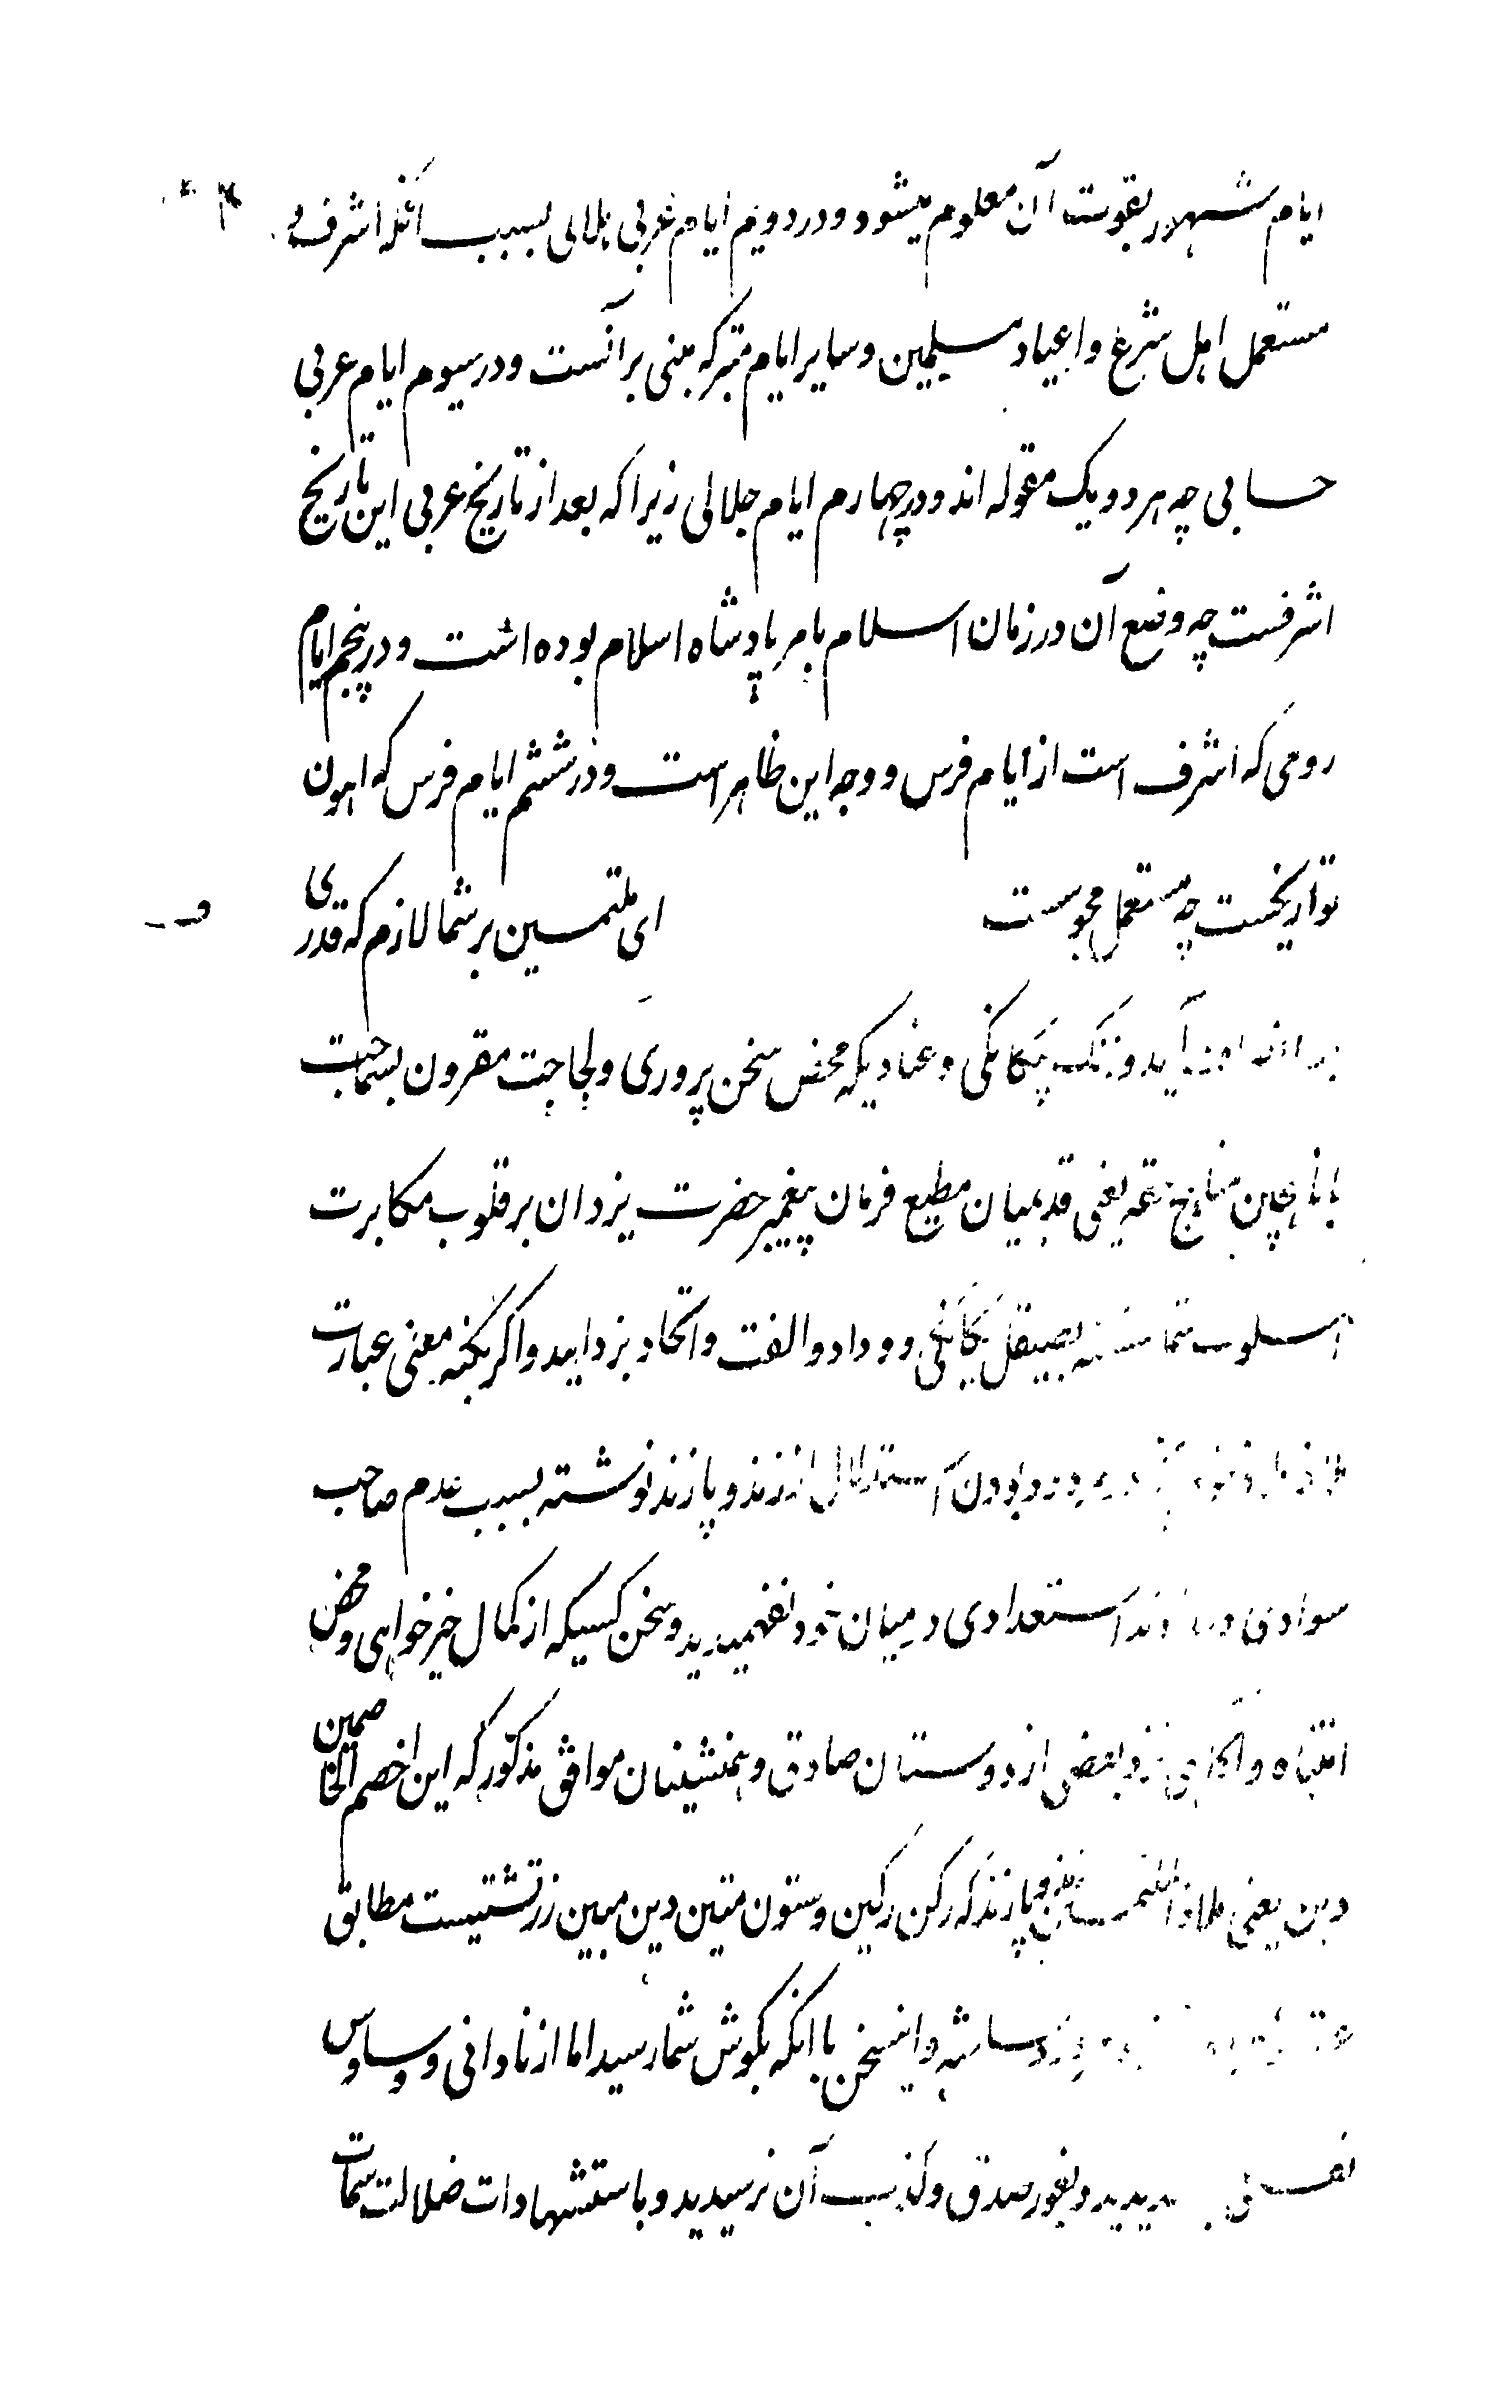 ایام شهور بقوت آن معلوم میشود و در دویم ایام عربی هلالی بسبب آنکه اشرف و
مستعمل اهل شرع و اعیاد مسلمین و سایر ایام متبرکه مبنی بر آنست و در سیوم ایام عربی
حسابی چه هر دو یک مقوله اند و در چهارم ایام جلالی زیرا که بعد از تاریخ عربی این تاریخ
اشرفست چه وضع آن در زمان اسلام بامر پادشاه اسلام بوده است و در پنجم ایام
رومی که اشرف است از ایام فرس و وجه این ظاهر است و در ششم ایام فرس که اهون
تواریخست چه مستعمل مجوست ای ملتمسین بر شما لازم که قدری
آید و زنک بیکانکی و عنادیکه محض سخن پروری و لجاجت مقرون بسماجت
یعنی قدیمیان مطیع فرمان پیغمبر حضرت یزدان بر قلوب مکابرت
اسلوب بصیقل یکانکی و وداد و الفت و اتحاد بزدایید و اکر بکنه معنی عبارت
استدلال از زند و پازند نوشته بسبب عدم صاحب
سوادی استعدادی در میان خود نفهمیدید و سخن کسیکه از کمال خیر خواهی و محض
انتباه و آکاهی نزد بعضی از دوستان صادق و همنشینان موافق مذکور که این اخصم الخاصمین
دین یعنی و پازند که رکن رکین و ستون متین دین مبین زرتشتیست مطابق
و اینسخن با آنکه بکوش شما رسید اما از نادانی و وساوس
و بغور صدق و کذب آن نرسیدید و باستشهادات ضلالت سمات